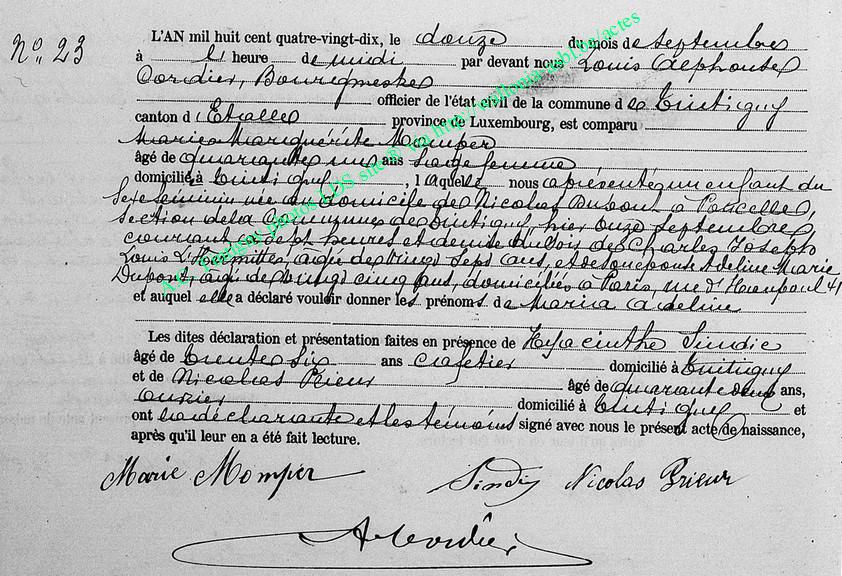 N° 23
L'AN mil huit cent quatre-vingt-dix, le douze du mois de septembre
à l' heure de midi par devant nous Louis Alphonse
Cordier, Bourgmestre
officier de l'état civil de la commune de Tintigny
canton d'Etalle province de Luxembourg, est comparu
Marie Marguérite Momper
âgé de quarante un ans Sage femme
domicilié à Tintigny, laquelle nous a présenté un enfant du
Sexe féminin née au domicile de Nicolas Dupont à Poncelle,
section de la Commune de Tintigny, hier onze septembre,
courant à sept heures et demie du soir de Charles Joseph
Louis L'Hermitte, agé de vingt sept ans, et de son épouse Adeline Marie
Dupont, agée de vingt cinq ans, domiciliés à Paris, rue d'Hautpoul 41
et auquel elle a déclaré vouloir donner les prénoms de Maria Adeline
Les dites déclaration et présentation faites en présence de Hyacinthe Sindic
âgé de trente six ans cafetier domicilié à Tintigny
et de Nicolas Prieur âgé de quarante deux ans,
ouvrier domicilié à Tintigny et
ont la déclarante et les témoins signé avec nous le présent acte de naissance,
après qu'il leur en a été fait lecture.
Marie Momper Sindic Nicolas Prieur
A Cordier
photos LDS site via http://wallonia.nobl.be/actes